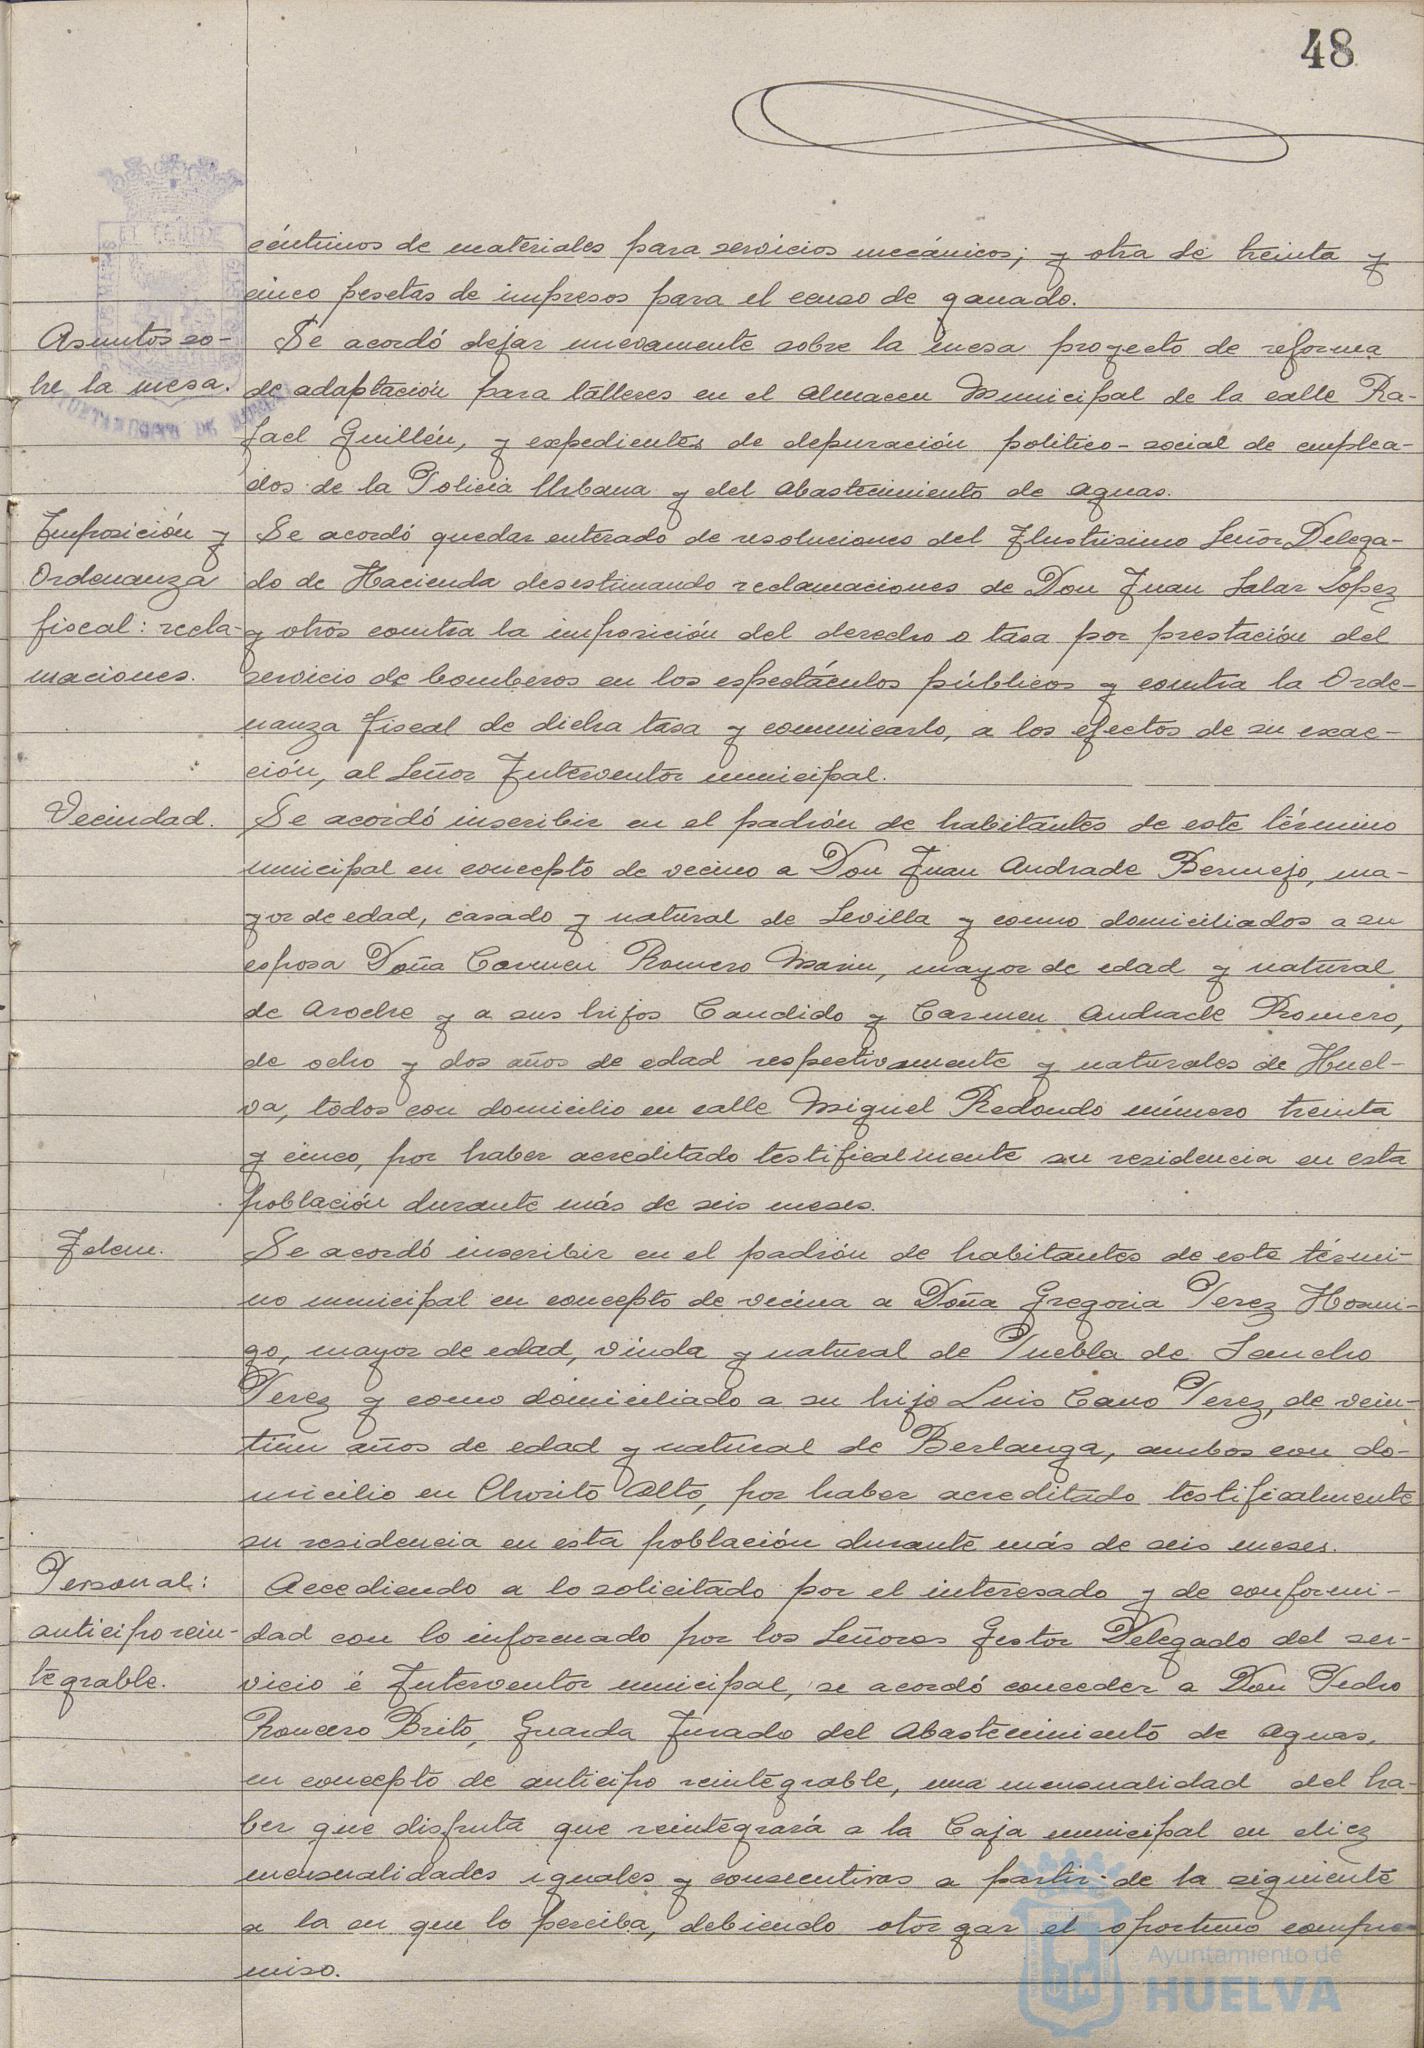 48
céntimos de materiales para servicios mecánicos; y otra de treinta y
cinco pesetas de impresos para el censo de ganado.
Asuntos so-
bre la mesa.
Se acordó dejar nuevamente sobre la mesa proyecto de reforma
de adaptación para talleres en el Almacen Municipal de la calle Ra-
fael Guillén, y expedientes de depuración politico-social de emplea-
dos de la Policia Urbana y del Abastecimiento de Aguas.
Imposición y
Ordenanza
fiscal: recla-
maciones.
Se acordó quedar enterado de resoluciones del Ilustrisimo Señor Delega-
do de Hacienda desestimando reclamaciones de Don Juan Salar López
y otros contra la imposición del derecho o tasa por prestación del
servicio de bomberos en los espectáculos públicos y contra la Orde-
nanza fiscal de dicha tasa y comunicarlo, a los efectos de su exac-
ción, al Señor Interventor municipal.
Vecindad.
Se acordó inscribir en el padrón de habitantes de este término
municipal en concepto de vecino a Don Juan Andrade Bermejo, ma-
yor de edad, casado y natural de Sevilla y como domiciliados a su
esposa Doña Carmen Romero Marin, mayor de edad y natural
de Aroche y a sus hijos Candido y Carmen Andrade Romero,
de ocho y dos años de edad respectivamente y naturales de Huel-
va, todos con domicilio en calle Miguel Redondo número treinta
y cinco, por haber acreditado testificalmente su residencia en esta
población durante más de seis meses.
Idem.
Se acordó inscribir en el padrón de habitantes de este térmi-
no municipal en concepto de vecina a Doña Gregoria Perez Hormi-
go, mayor de edad, viuda y natural de Puebla de Sancho
Perez y como domiciliado a su hijo Luis Cano Perez, de vein-
tiun años de edad y natural de Berlanga, ambos con do-
micilio en Chorito Alto, por haber acreditado testificalmente
su residencia en esta población durante más de seis meses.
Personal:
anticipo rein-
tegrable.
Accediendo a lo solicitado por el interesado y de conformi-
dad con lo informado por los Señores Gestor Delegado del ser-
vicio é Interventor municipal, se acordó conceder a Don Pedro
Roncero Brito, Guarda Jurado del Abastecimiento de Aguas,
en concepto de anticipo reintegrable, una mensualidad del ha-
ber que disfruta que reintegrará a la Caja municipal en diez
mensualidades iguales y consecutivas a partir de la siguiente
a la en que lo perciba, debiendo otorgar el oportuno compro-
miso.
Ayuntamiento de
HUELVA